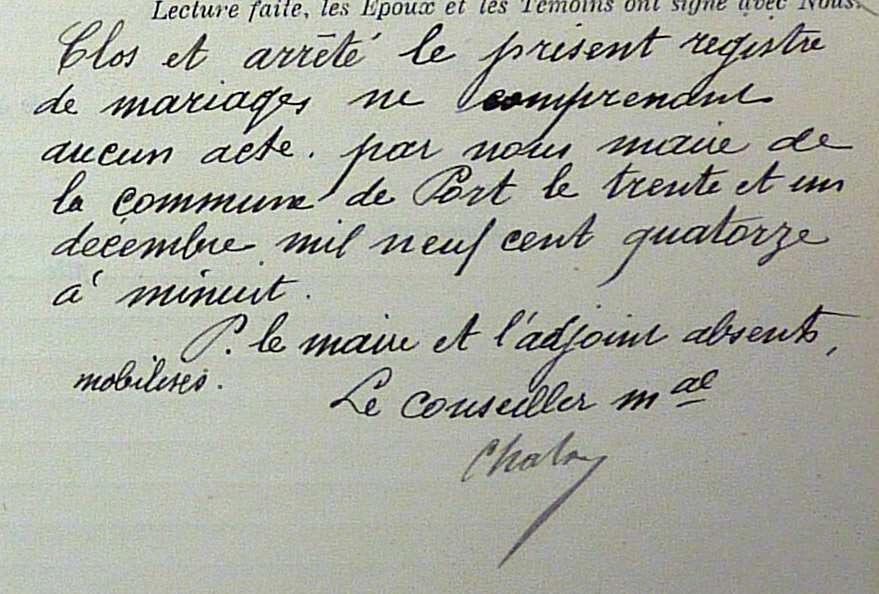 Lecture faite, les Epoux et les Témoins ont signé avec Nous.
Clos et arrêté le présent registre
de mariages ne comprenant
aucun acte. par nous maire de
la commune de Port le trente et un
décembre mil neuf cent quatorze
à minuit.
P. le maire et l'adjoint absents,
mobilisés.
Le conseiller mal